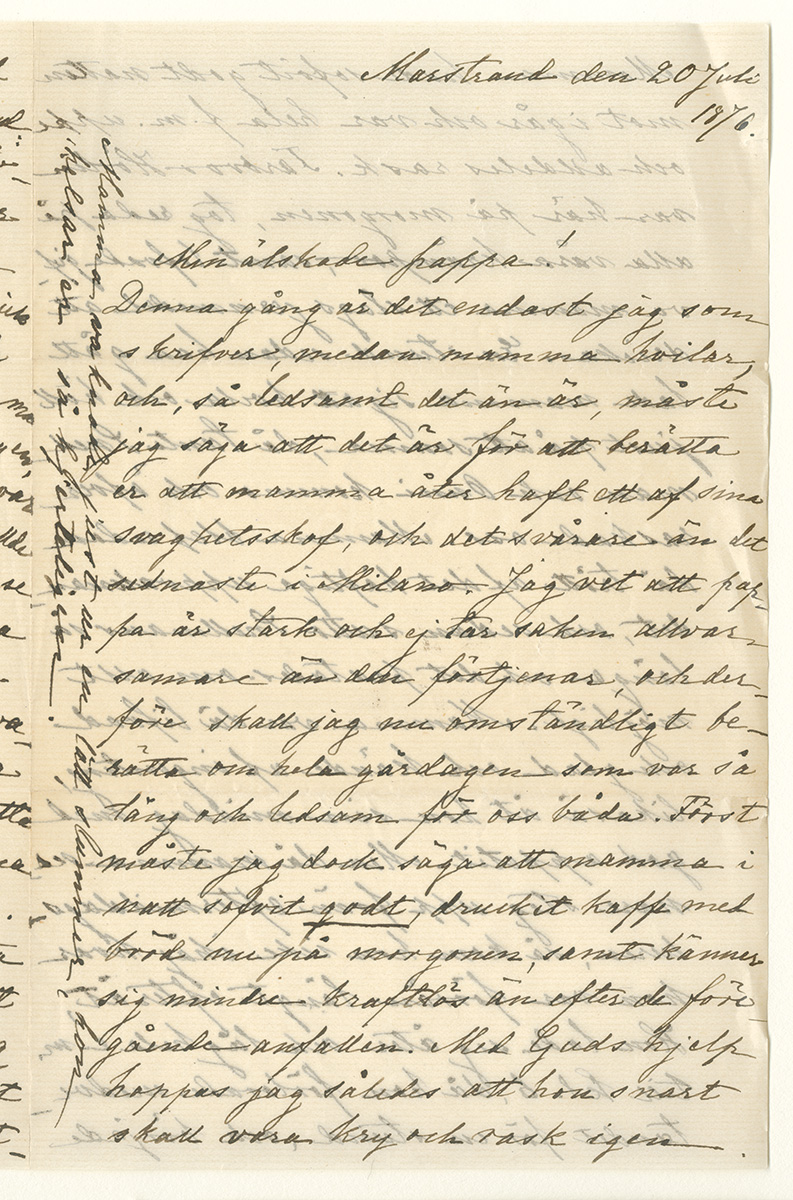 Marstrand den 20 Juli
1876.
Min älskade pappa!
Denna gång är det endast jag som
skrifver, medan mamma hvilar,
och, så ledsamt det än är, måste
jag säga att det är för att berätta
er att mamma åter haft ett af sina
svaghetsskof, och det svårare än det
sednaste i Milano. Jag vet att pap-
pa är stark och ej tar saken allvar-
sammare än den förtjenar, och der-
före skall jag nu omständligt be-
rätta om hela gårdagen som var så
lång och ledsam för oss båda. Först
måste jag dock säga att mamma i
natt sofvit godt, druckit kaffe med
bröd nu på morgonen, samt känner
sig mindre kraftlös än efter de före-
gående anfallen. Med Guds hjelp
hoppas jag således att hon snart
skall vara kry och rask igen.
Mamma vaknade just ur en lätt slummer; hon
helsar er så hjerteligen.